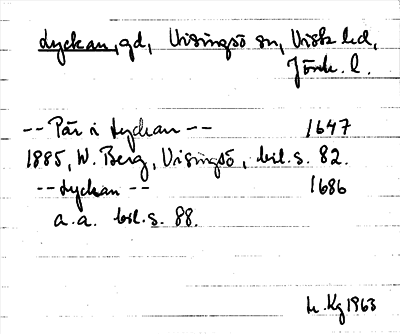 Lyckan, gd, Visingsö sn, Vista hd,
Jönk. l.
-- Pär i Lyckan -- 1647
1885, W. Berg, Visingsö, bil. s. 82.
-- Lyckan -- 1686
a.a. bil. s. 88.
L. Kg 1963